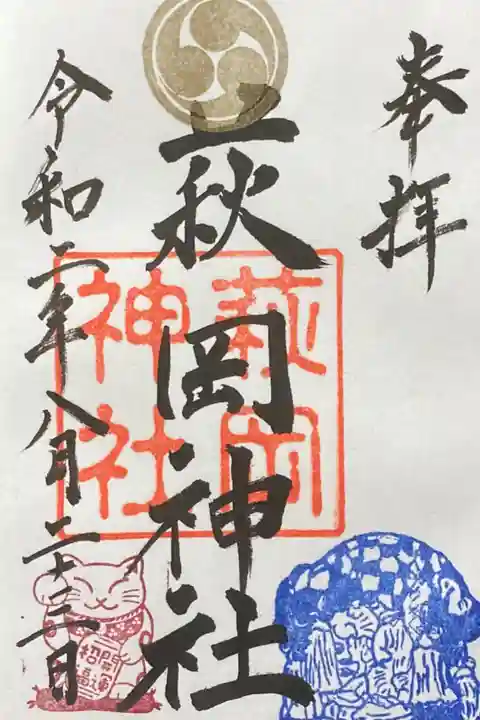 奉拝
萩岡神社
萩岡
神社
令和二年八月二十三日
招福
開運